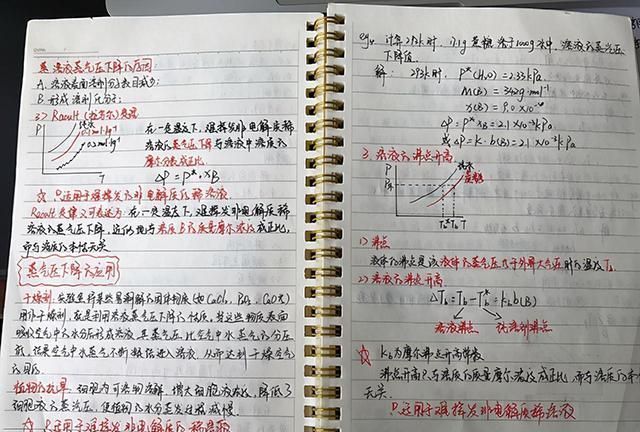 蒸 溶液蒸气压下降的原因:
A. 溶液表面溶剂分子数目减少;
B. 形成溶剂化分子;
3> Raoult(拉乌尔)定律
P
纯水
0.1mol·kg⁻¹
0.2mol·kg⁻¹
T
在一定温度下,难挥发非电解质稀
溶液的蒸气压下降与溶液中溶质的
摩尔分数成正比
ΔP = P*·xB
☆ 只适用于难挥发的非电解质稀溶液
Raoult定律又可表述为:在一定温度下,难挥发非电解质稀
溶液的蒸气压下降,近似地与溶质B的质量摩尔浓度成正比,
而与溶质的本性无关
蒸气压下降的应用
干燥剂:实验室将某些易潮解的固体物质(如CaCl₂、P₂O₅、CaO等)
用作干燥剂,就是利用溶液蒸气压下降的性质,其这些物质表面
吸收空气中水分后形成溶液,其蒸气压比空气中水蒸气的分压
低,结果空气中水蒸气不断凝结进入溶液,从而达到干燥空气
的目的.
植物的抗旱:细胞内可溶物溶解,增大细胞液浓度,降低了
细胞液的蒸汽压,使植物的水分蒸发过程减慢.
☆ 只适用于难挥发非电解质的稀溶液
eg. 计算293K时,17.1g蔗糖溶于1000g水中,溶液的蒸气压
下降值.
解: 293K时, P*(H₂O)=2.33kPa
M(B) = 342g·mol⁻¹
x(B) = 9.0×10⁻⁴
ΔP = P*xB = 2.1×10⁻³kPa
或 ΔP = K·b(B) = 2.1×10⁻³kPa
3. 溶液的沸点升高
P
纯水
蒸糖
Tb* Tb T
1) 沸点
液体的沸点是该液体的蒸气压等于外界大气压时的温度Tb.
2) 溶液的沸点升高
ΔTb = Tb - Tb* = kb b(B)
溶液沸点 纯溶剂沸点
☆ kb为摩尔沸点升高常数
沸点升高只与溶质的质量摩尔浓度成正比,而与溶质的本性
无关.
只适用于难挥发非电解质稀溶液